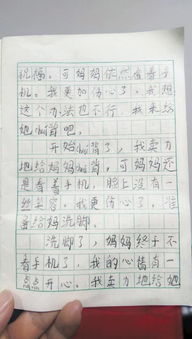 机瘾。可妈妈依然看着手
机。我更加伤心了。我想
这个办法也不行，我来给
她捶背吧。
开始捶背了，我卖力
地给妈妈捶背，可妈妈还
是看着手机，脸上没有一
丝笑容。我更伤心了，
给妈洗脚。
洗脚了，妈妈终于不
看手机了，我的心暗有一
点点开心。我卖力地给她